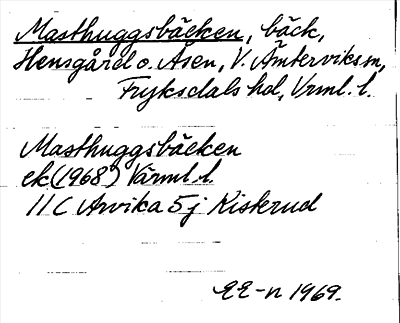 Masthuggsbäcken, bäck,
Hensgård o. Åsen, V. Ämterviks sn,
Fryksdals hd, Vrml. l.
Masthuggsbäcken
ek. (1968) Värml. l.
11 C Arvika 5 j Kisterud
EE-n 1969.